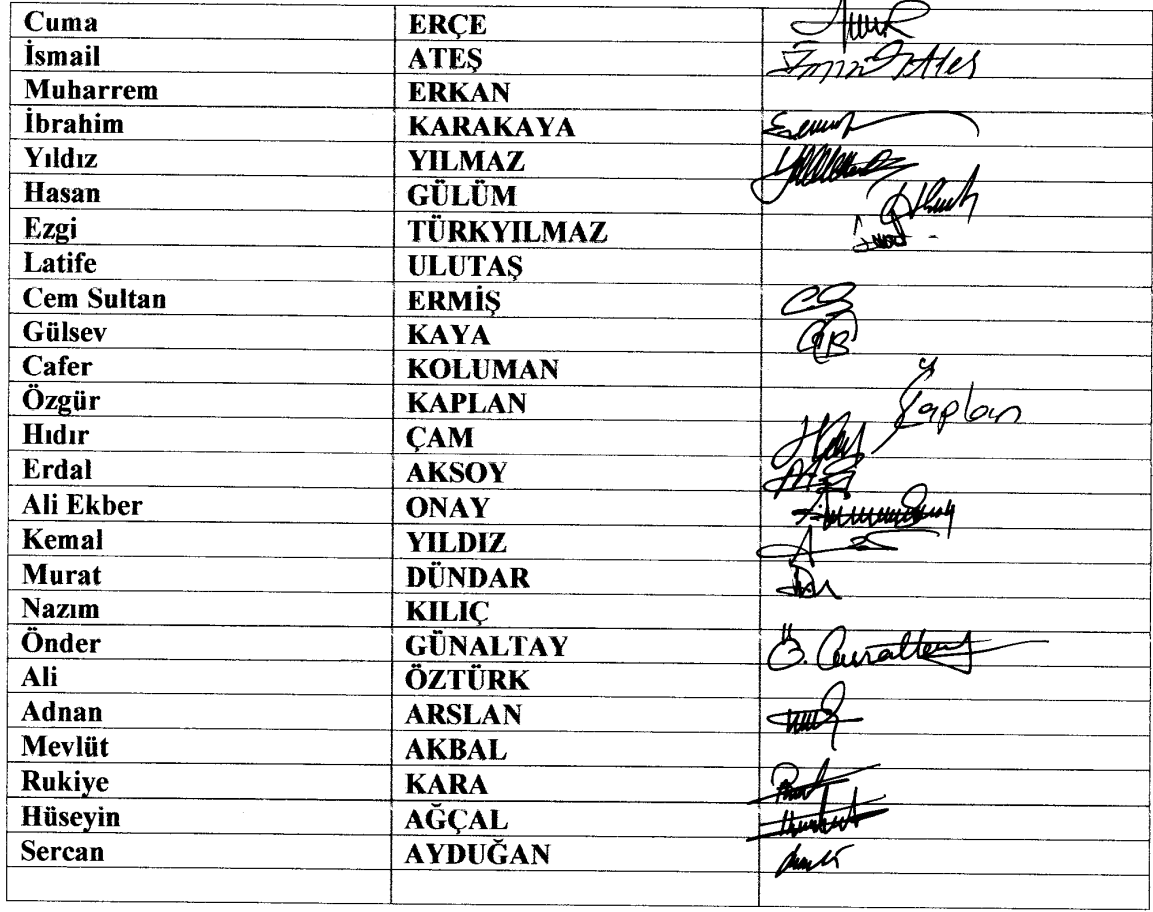 Cuma ERÇE
İsmail ATEŞ
Muharrem ERKAN
İbrahim KARAKAYA
Yıldız YILMAZ
Hasan GÜLÜM
Ezgi TÜRKYILMAZ
Latife ULUTAŞ
Cem Sultan ERMİŞ
Gülsev KAYA
Cafer KOLUMAN
Özgür KAPLAN Kaplan
Hıdır ÇAM
Erdal AKSOY
Ali Ekber ONAY
Kemal YILDIZ
Murat DÜNDAR
Nazım KILIÇ
Önder GÜNALTAY
Ali ÖZTÜRK
Adnan ARSLAN
Mevlüt AKBAL
Rukiye KARA
Hüseyin AĞÇAL
Sercan AYDUĞAN